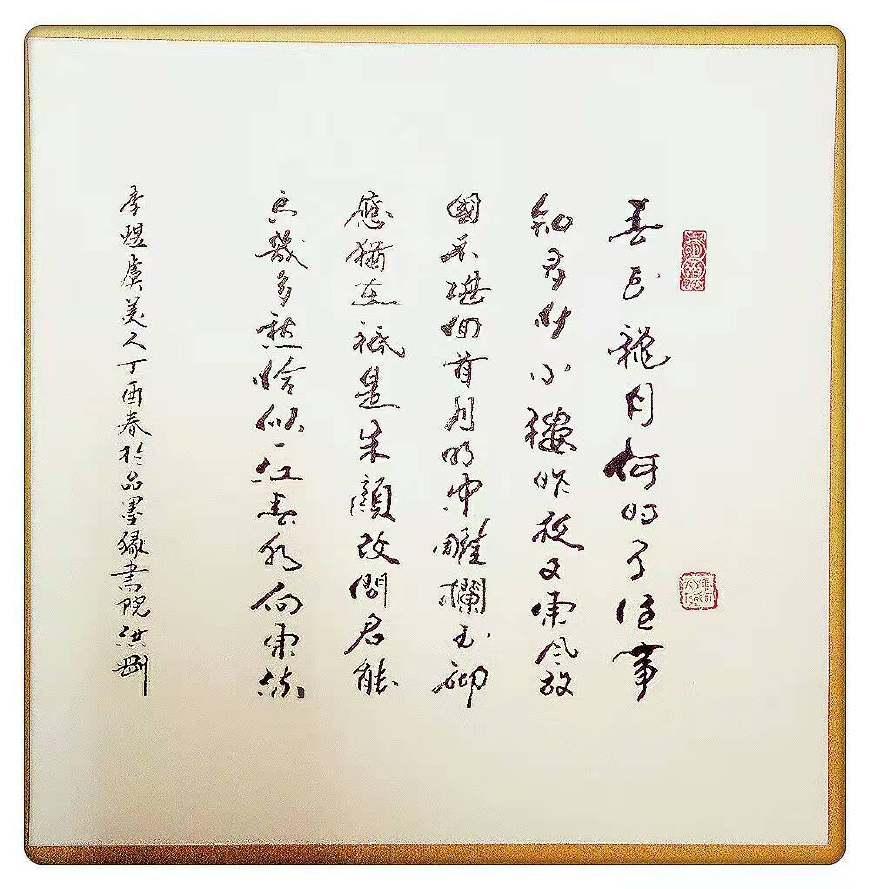 春花龝月何時了往事
知多少小樓昨夜又東風故
國不堪回首月明中雕欄玉砌
應猶在祇是朱顏改問君能
有幾多愁恰似一江春水向東流
李煜虞美人丁酉春於品墨緣書院洪剛